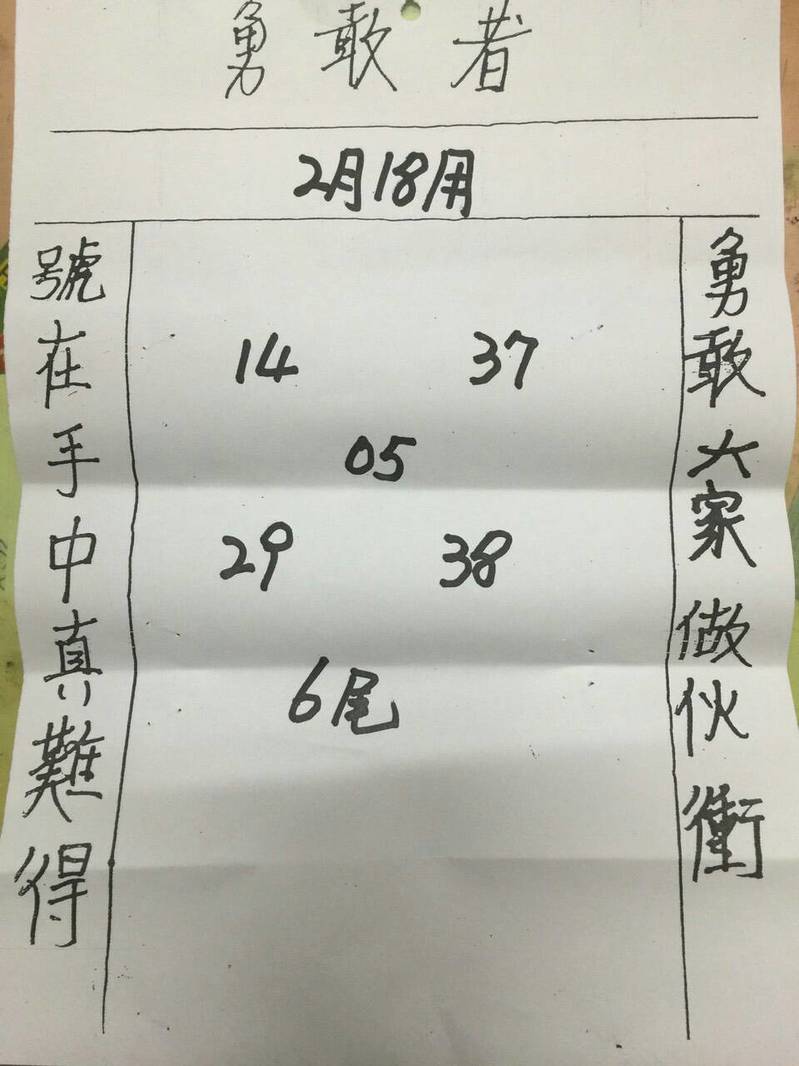 勇敢者
2月18用
勇敢大家做伙衝
14 37
05
29 38
6尾
號在手中真難得